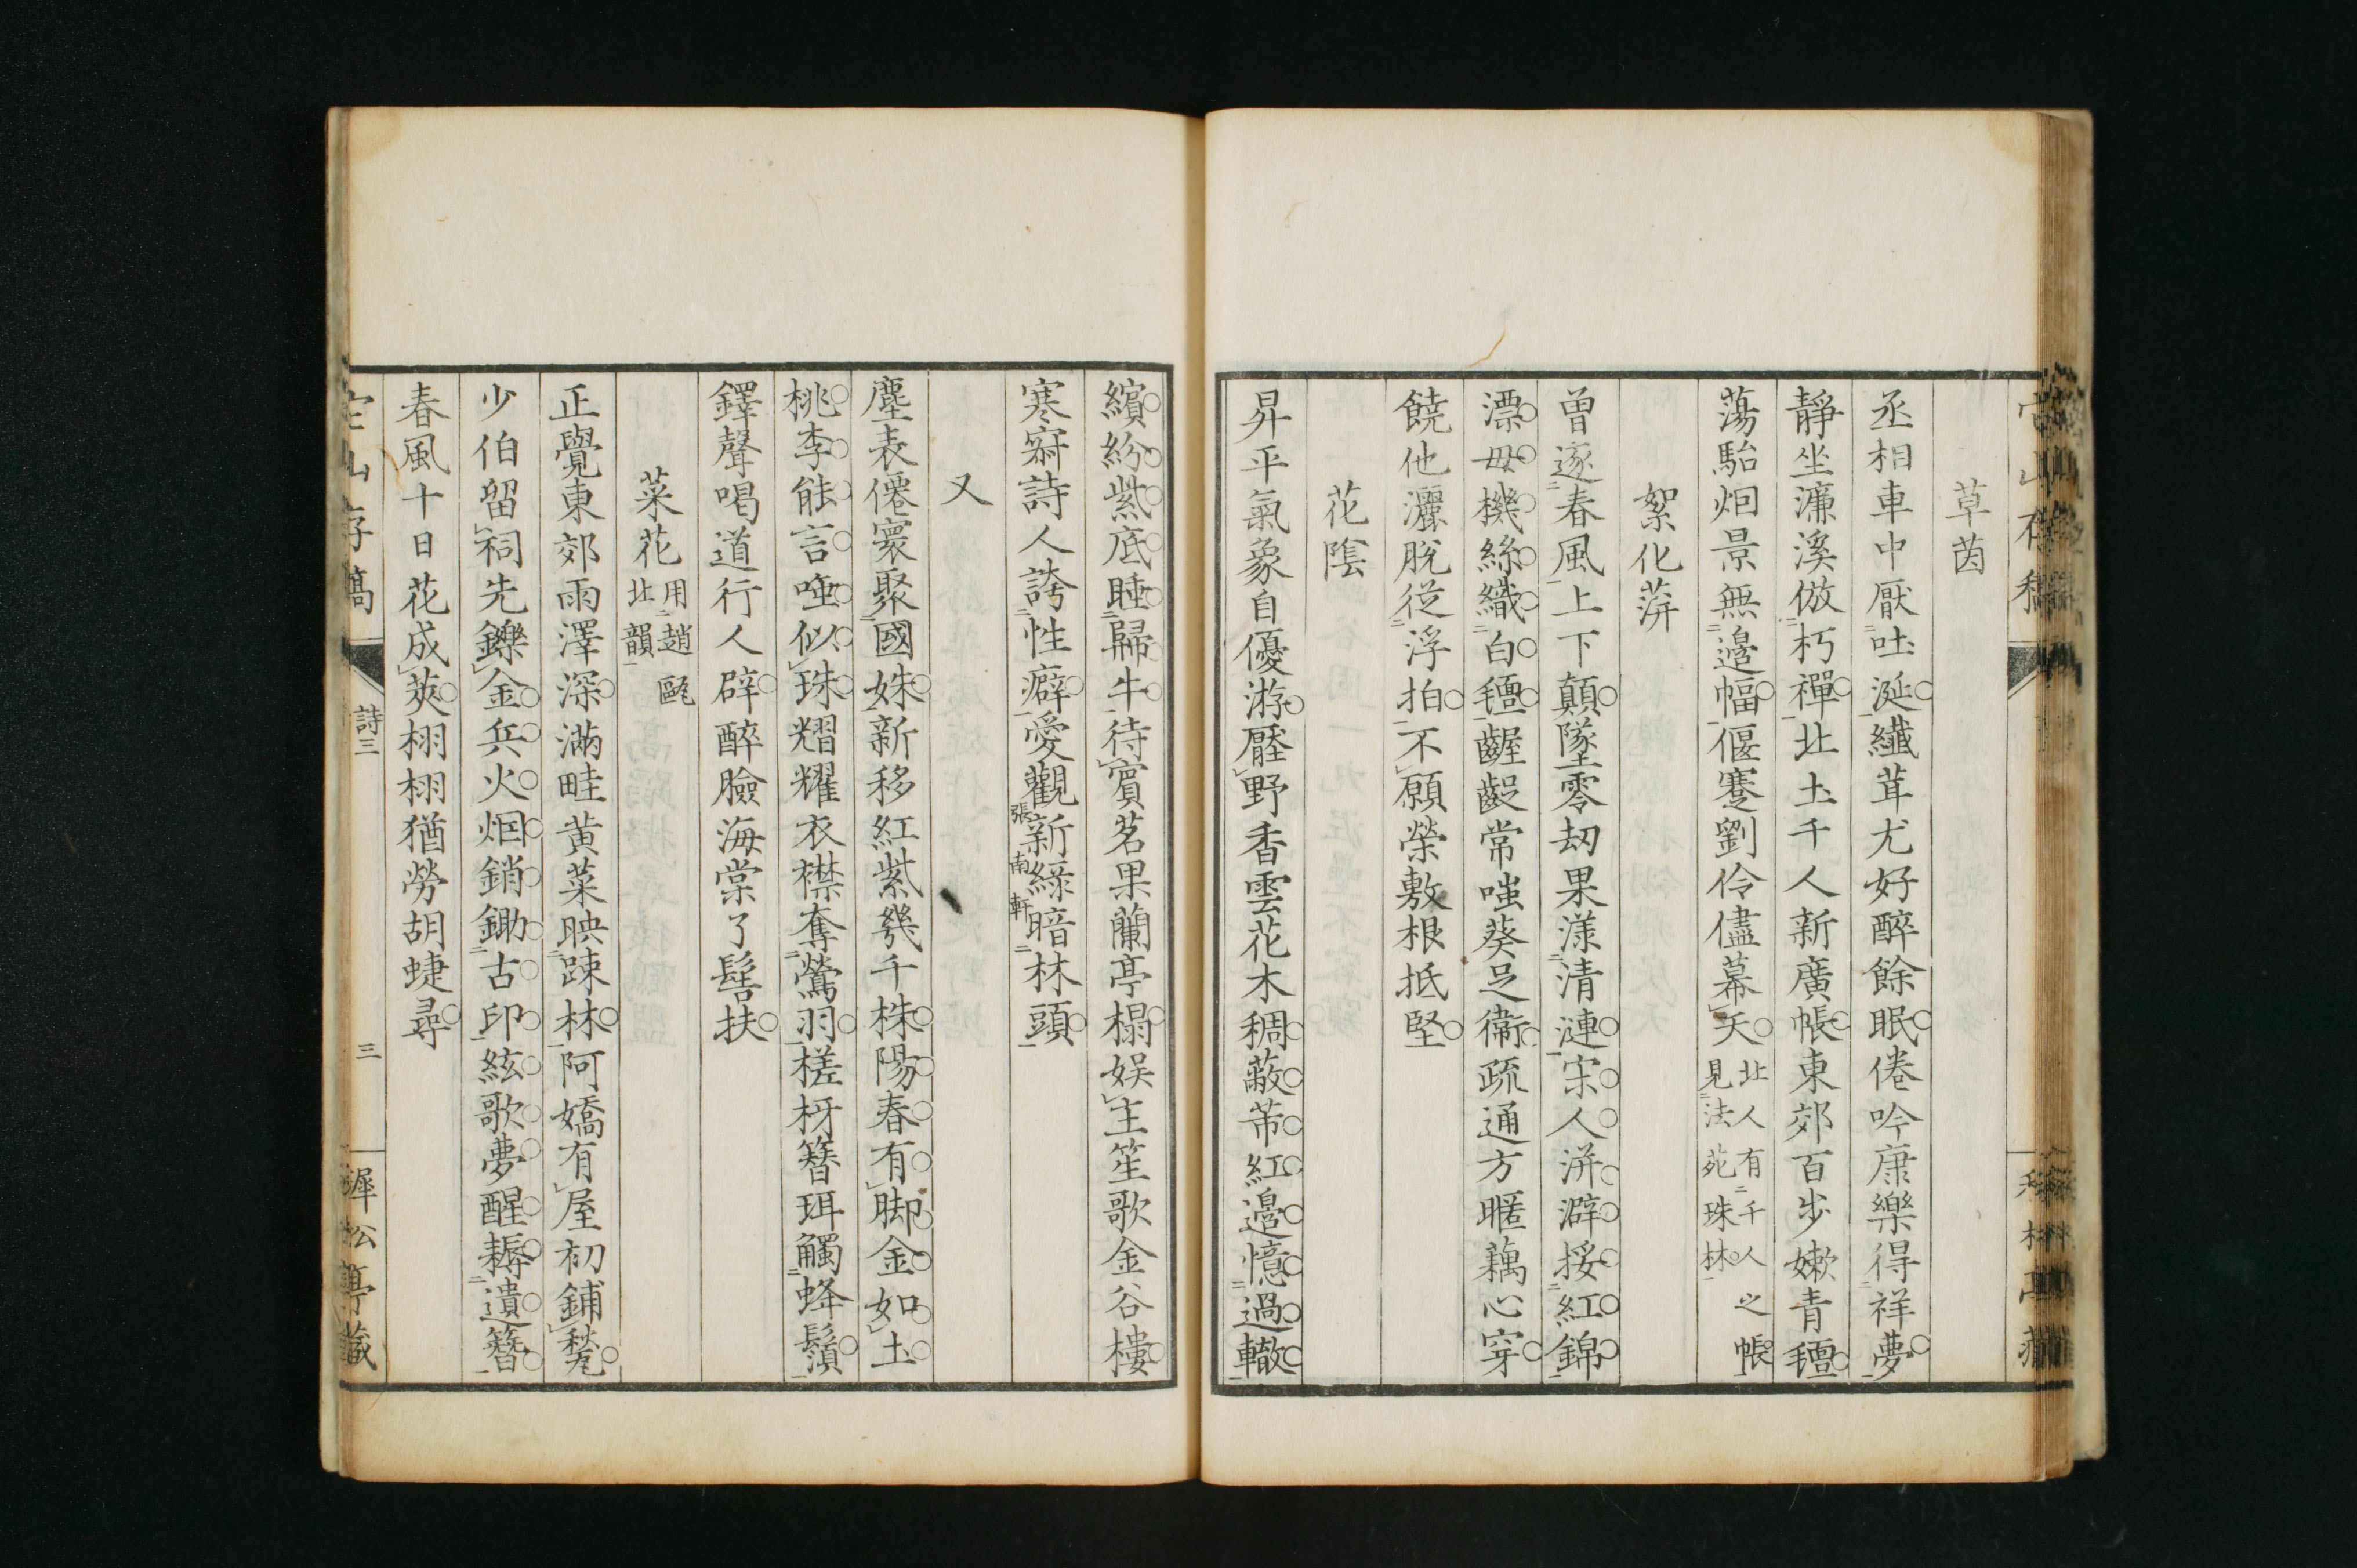 草茵
丞相車中厭吐涎纎茸尤好醉餘眠倦吟康樂得祥夢
靜坐濂溪倣朽禪北土千人新廣帳東郊百步嫩青氊
蕩駘烟景無邉幅偃蹇劉伶儘幕天北人有千人之帳
見法苑珠林
絮化萍
曾逐春風上下顛墜零刼果漾清漣宗人洴澼挼紅錦
漂母機絲織白氊齷齪常嗤葵足衞疏通方暱藕心穿
饒他灑脫從浮拍不願榮敷根抵堅
花陰
昇平氣象自優游㕓野香雲花木稠蔽芾紅邉憶過轍
繽紛紫底睡歸牛待賓茗果蘭亭榻娱主笙歌金谷樓
寒窘詩人誇性癖愛觀新綠暗林頭
張南軒
又
塵表僊寰聚國姝新移紅紫幾千株陽春有脚金如土
桃李能言唾似珠熠耀衣襟奪鶯羽槎枒簪珥觸蜂鬚
鐸聲喝道行人辟醉臉海棠了髻扶
菜花用趙甌
北韻
正覺東郊雨澤深滿畦黄菜映疎林阿嬌有屋初鋪甃
少伯留祠先鑠金兵火烟銷鋤古印絃歌夢醒耨遺簪
春風十日花成莢栩栩猶勞胡蜨尋
山存稿
詩三
三
犀松亭藏